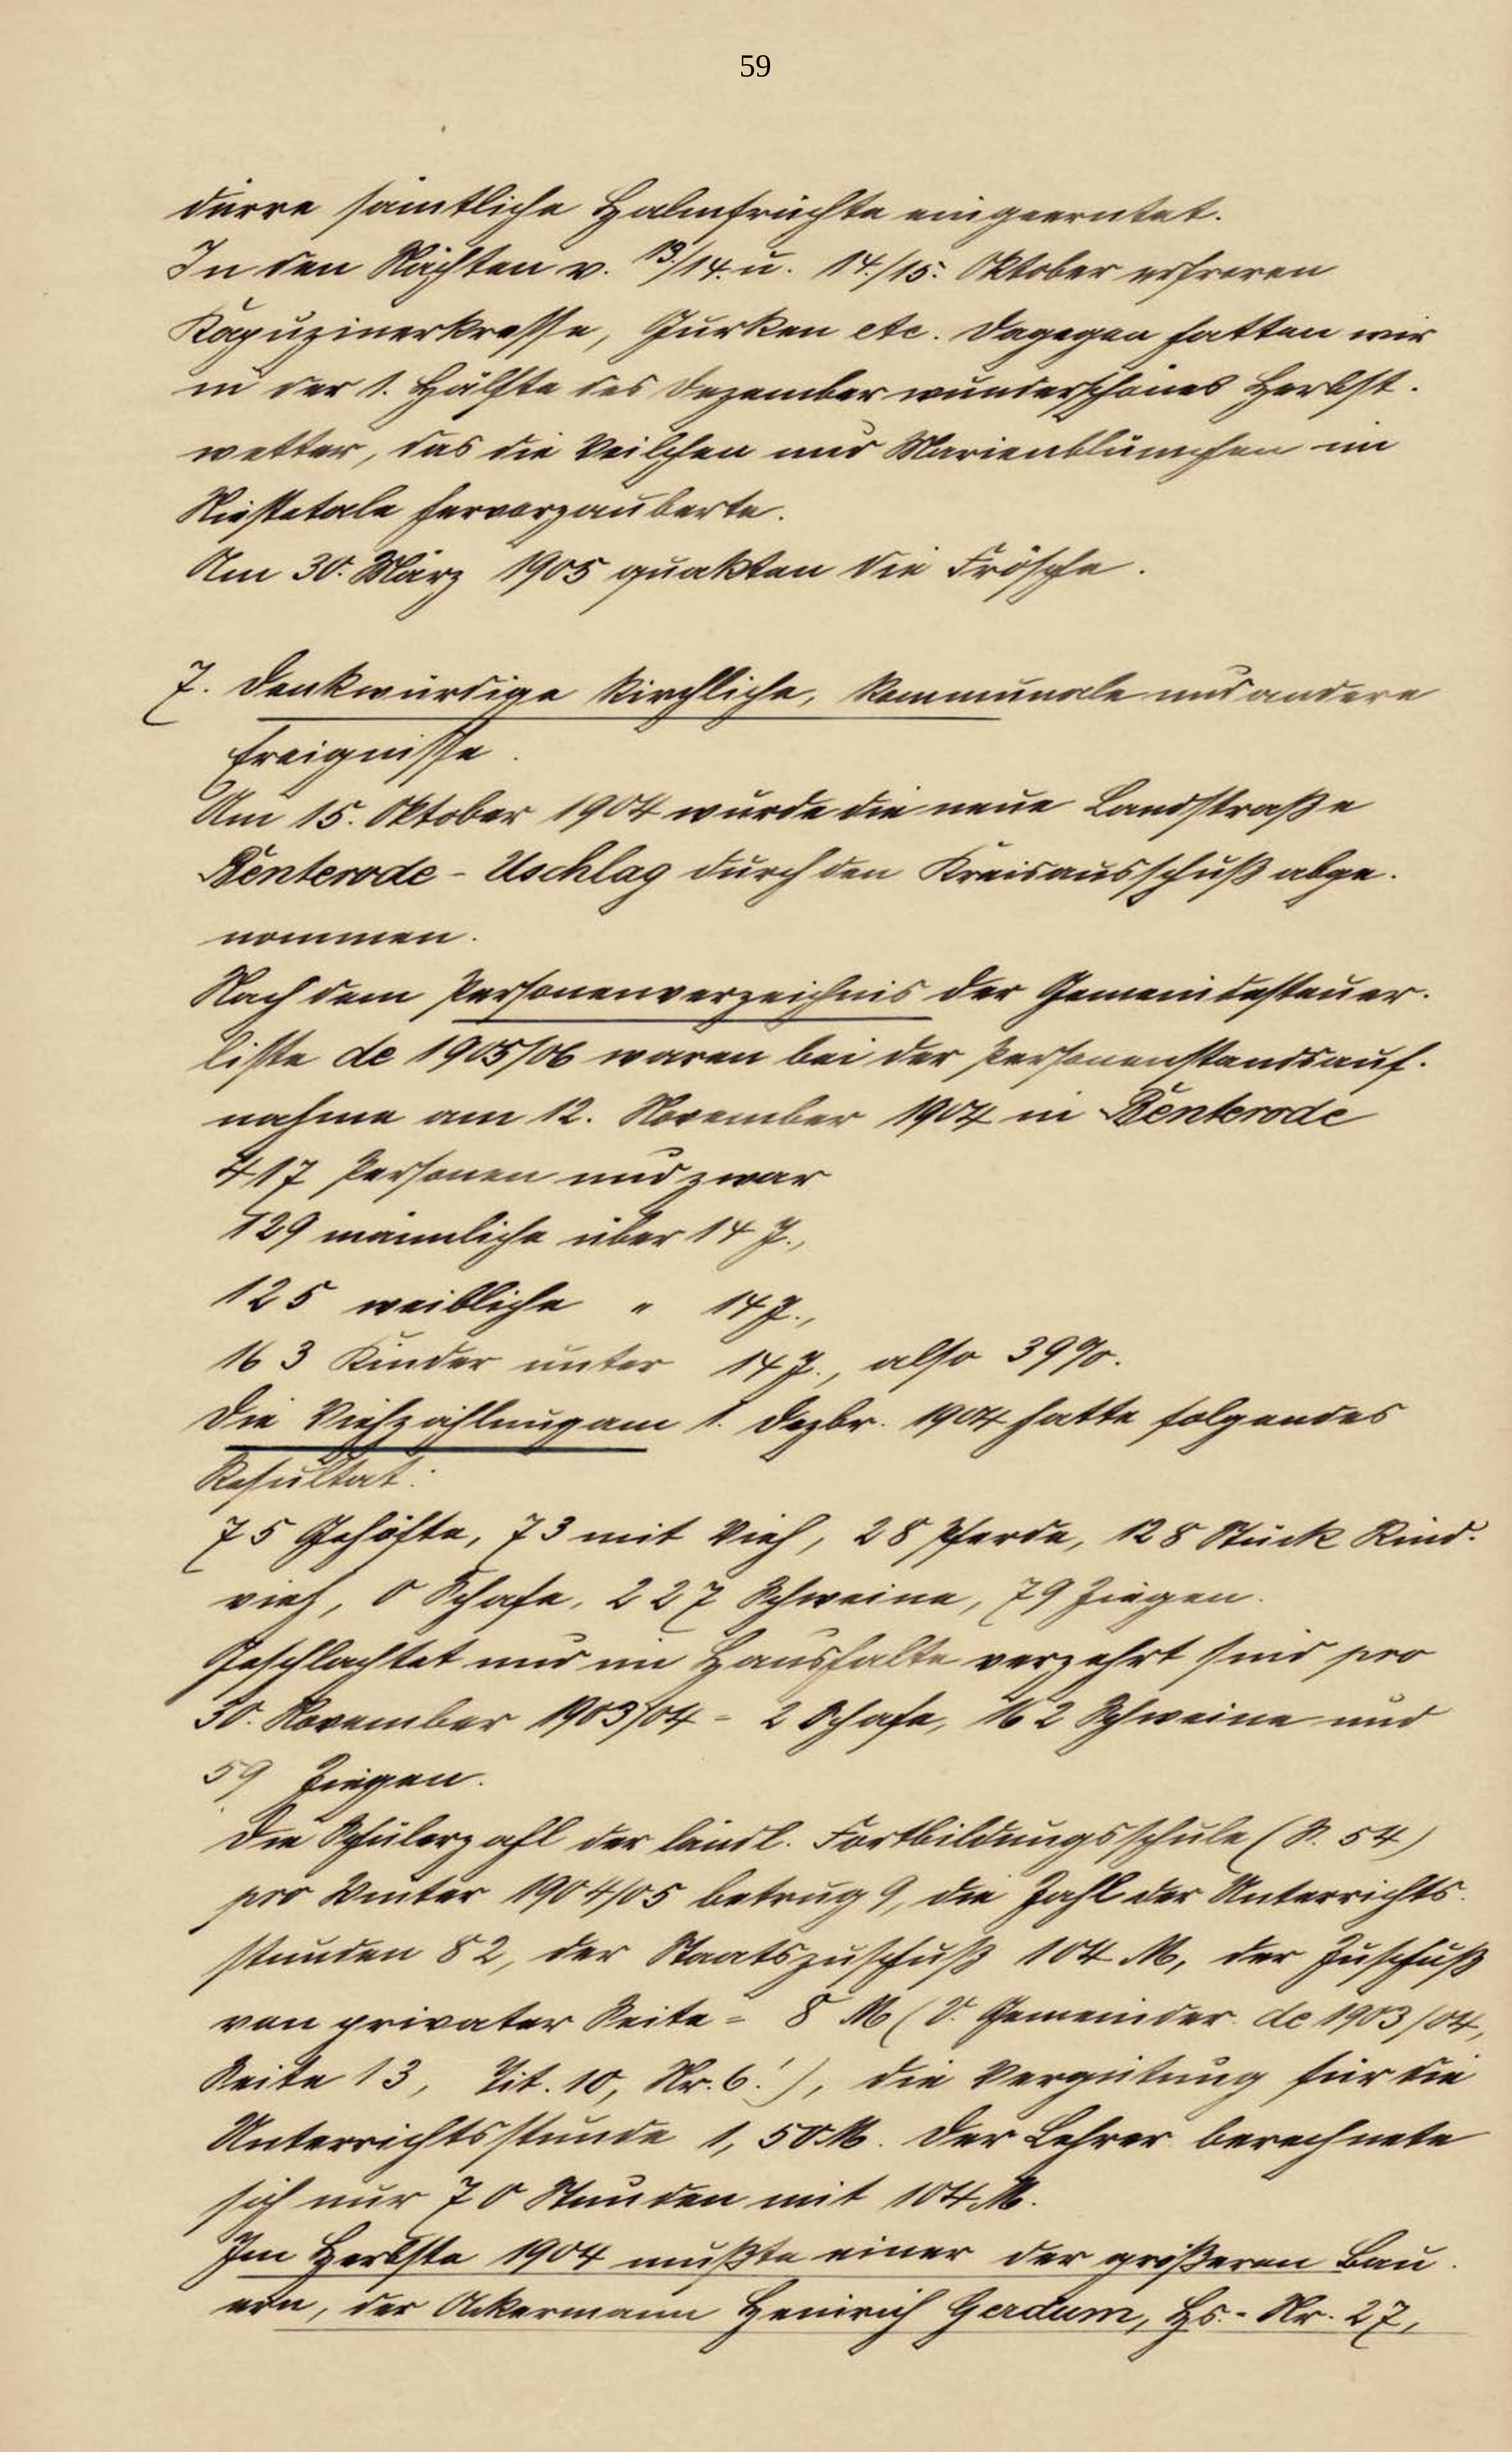 59
dürre sämtliche Halmfrüchte eingeerntet.
In den Nächten v. 13./14. u. 14./15. Oktober erfroren
Kapuzinerkresse, Gurken etc. Dagegen hatten wir
in der 1. Hälfte des Dezember wunderschönes Herbst-
wetter, das die Veilchen und Marienblümchen im
Niestetale hervorzauberte.
Am 30. März 1905 quakten die Frösche.
7. Denkwürdige kirchliche, kommunale und andere
Ereignisse.
Am 15. Oktober 1904 wurde die neue Landstraße
Benterode - Uschlag durch den Kreisausschuß abge-
nommen.
Nach dem Personenverzeichnis der Gemeindesteuer-
liste de 1905/06 waren bei der Personenstandsauf-
nahme am 12. November 1904 in Benterode
417 Personen und zwar
129 männliche über 14 J.,
125 weibliche " 14 J.,
163 Kinder unter 14 J., also 39%.
Die Viehzählung am 1. Dezbr. 1904 hatte folgendes
Resultat:
75 Gehöfte, 73 mit Vieh, 28 Pferde, 128 Stück Rind-
vieh, 0 Schafe, 227 Schweine, 79 Ziegen.
Geschlachtet und im Haushalte verzehrt sind pro
30. November 1903/04 = 2 Schafe, 162 Schweine und
59 Ziegen.
Die Schülerzahl der ländl. Fortbildungsschule (S. 54)
pro Winter 1904/05 betrug 9, die Zahl der Unterrichts-
stunden 82, der Staatszuschuß 104 M, der Zuschuß
von privater Seite = 8 M (V. Gemeinder. de 1903/04,
Seite 13, Tit. 10, Nr. 6!), die Vergütung für die
Unterrichtsstunde 1,50 M. Der Lehrer berechnete
sich nur 70 Stunden mit 104 M.
Im Herbste 1904 mußte einer der größeren Bau-
ern, der Ackermann Heinrich Gerdum, Hs.-Nr. 27,